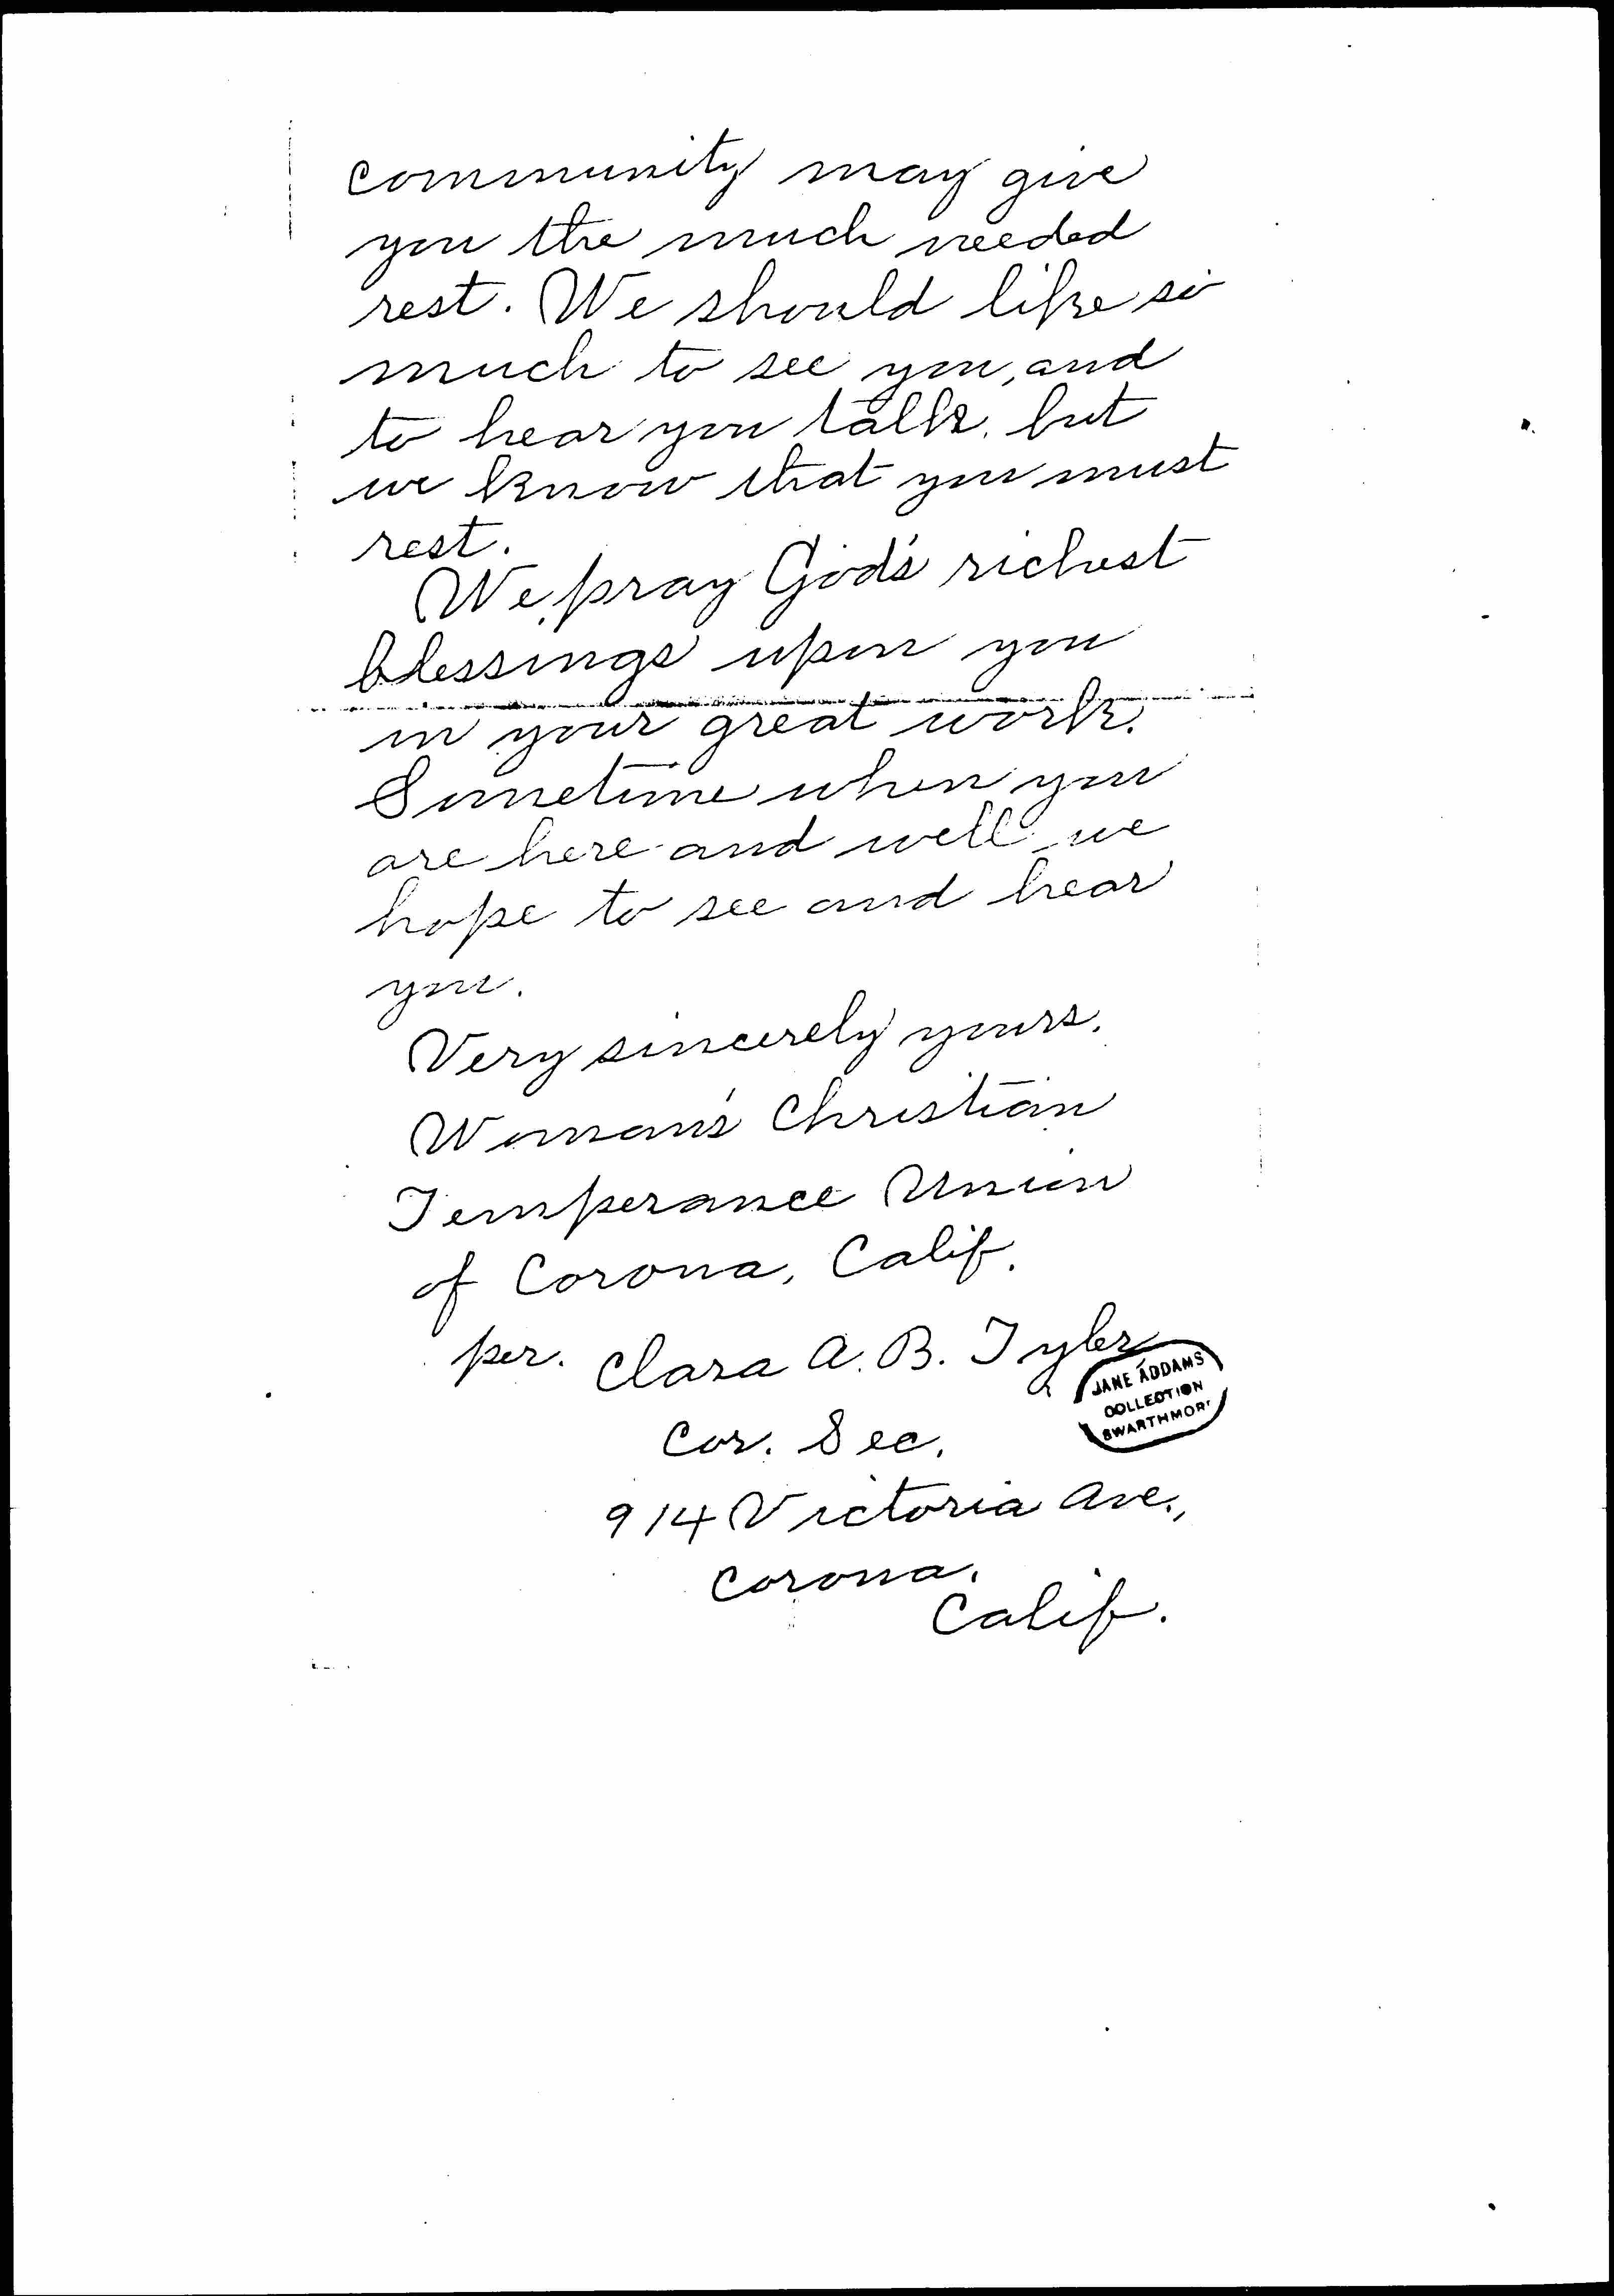 community may give
you the much needed
rest. We should like so
much to see you, and
to hear you talk, but
we know that you must
rest.
We pray God's richest
blessings upon you
in your great work.
Sometime when you
are here and well we
hope to see and hear
you.
Very sincerely yours,
Woman's Christian
Temperance Union
of Corona, Calif.
per. Clara A. B. Tyler
Cor. Sec.
914 Victoria Ave.,
Corona,
Calif.
JANE ADDAMS
COLLECTION
SWARTHMOR